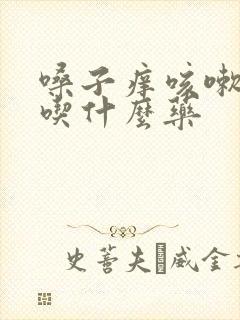 嗓子痒咳嗽
喫什麼藥
史蒈夫威金